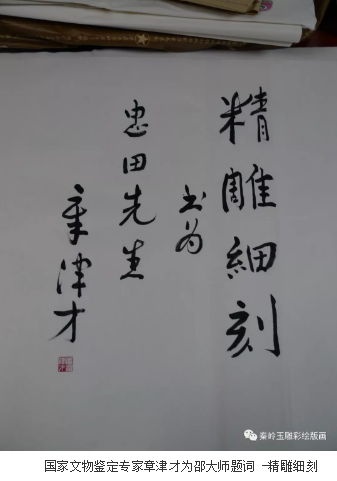 精雕细刻
书为
忠田先生
章津才
秦岭玉雕彩绘版画
国家文物鉴定专家章津才为邵大师题词 -精雕细刻